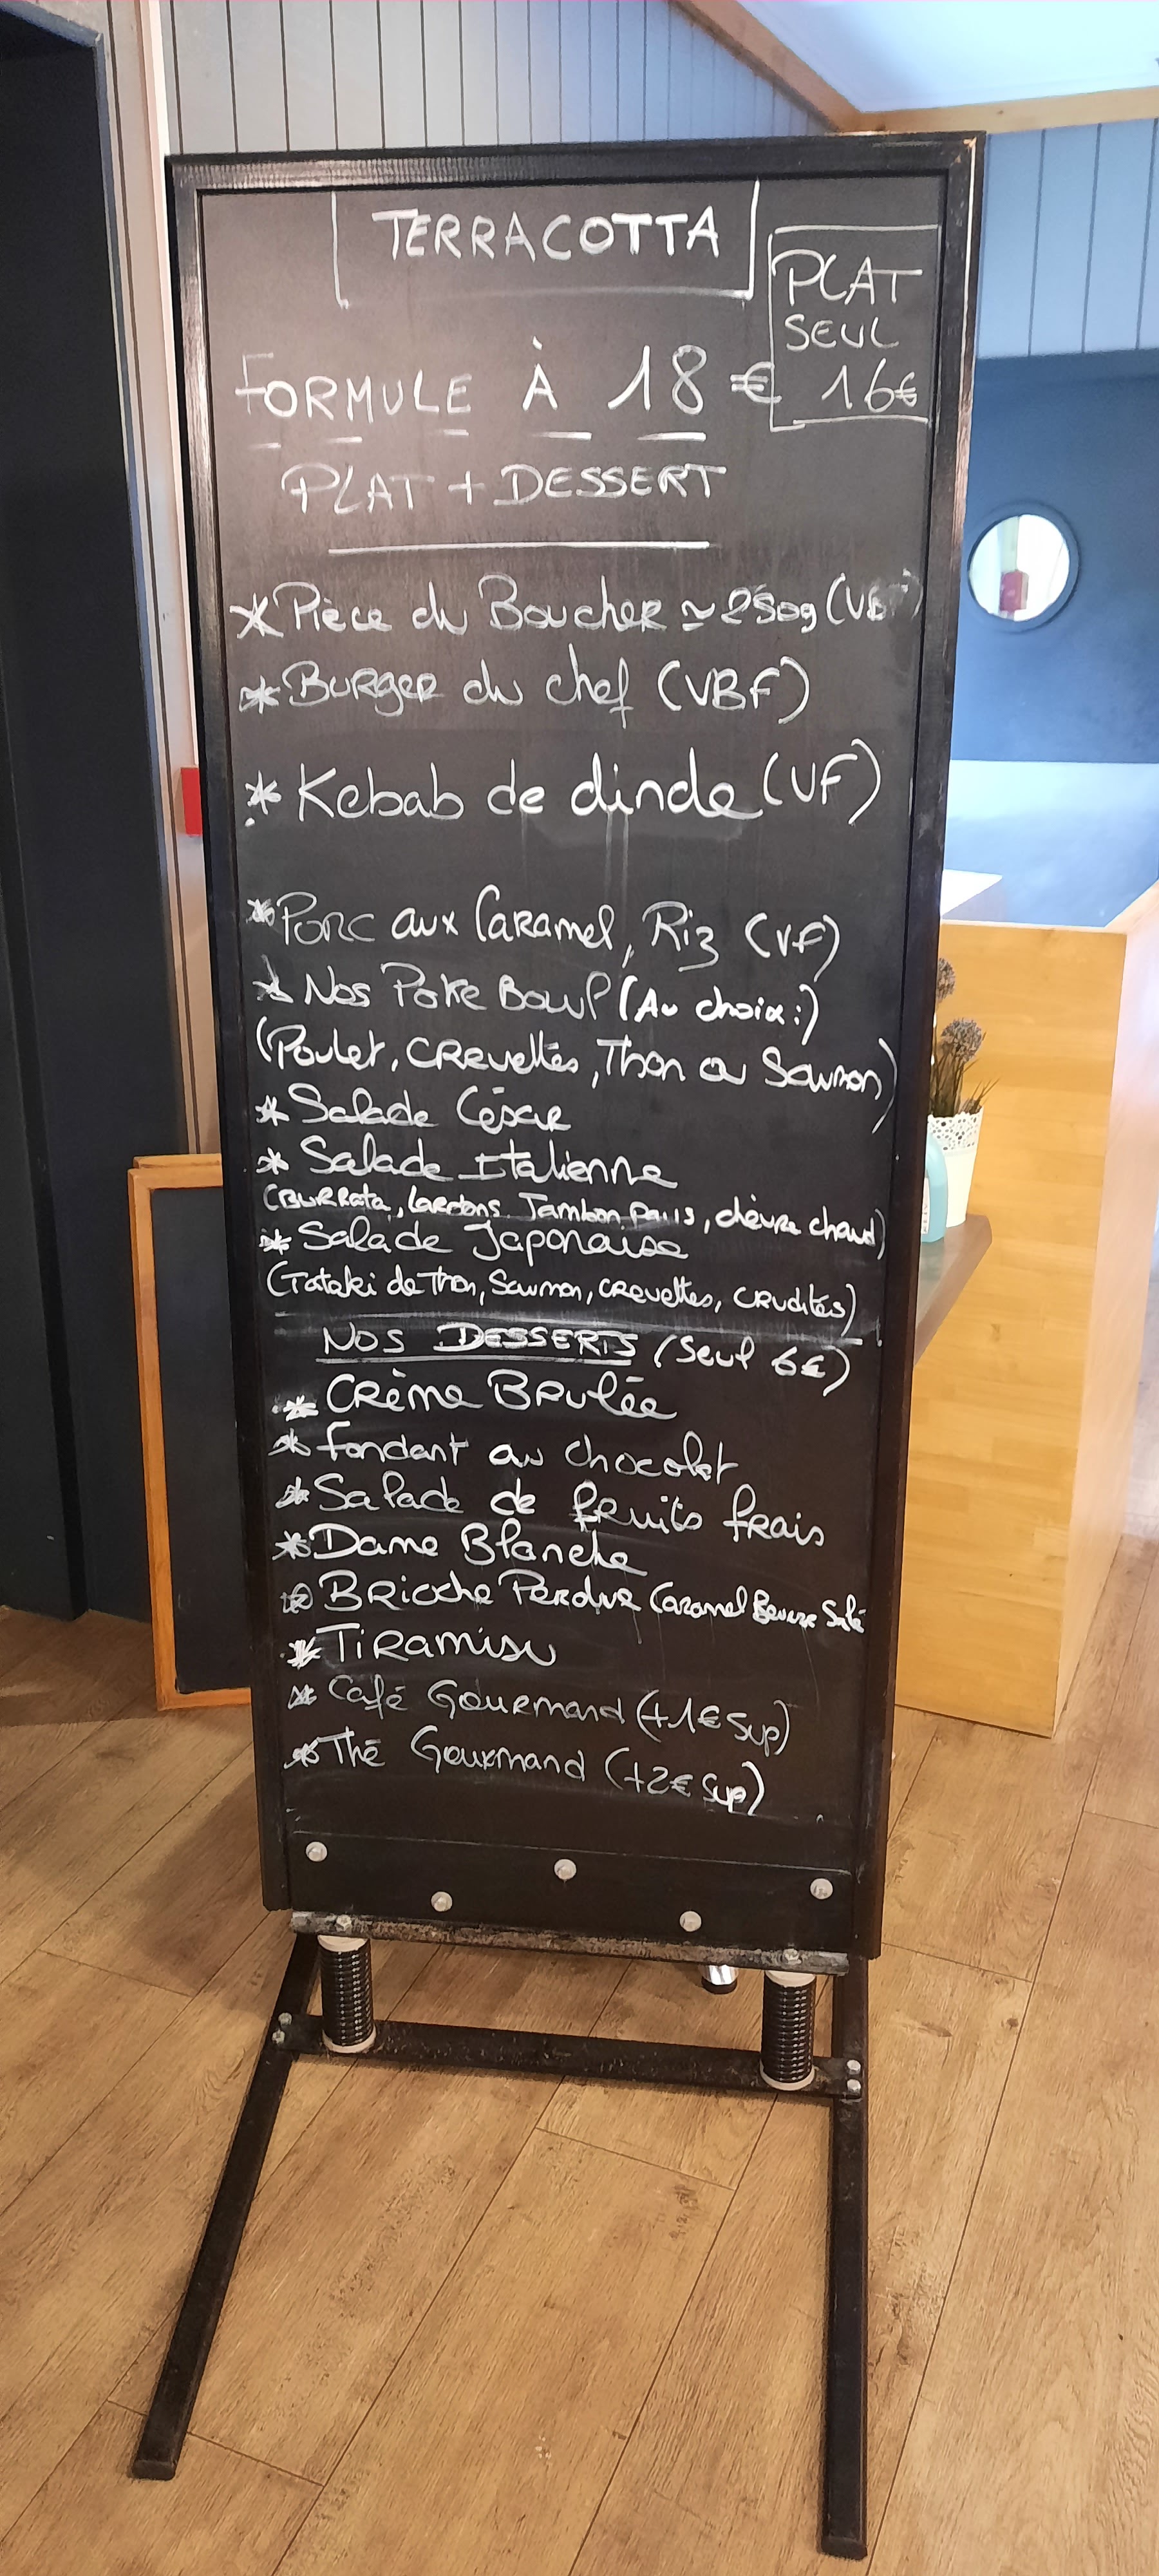 TERRACOTTA
PLAT
SEUL
16€
FORMULE À 18€
PLAT + DESSERT
* Pièce du Boucher ≃ 250g
* BURGER du chef (VBF)
* Kebab de dinde (VF)
* PORC aux CARAMEL, Riz (VF)
* Nos Poke Bowl (Au choix :)
(Poulet, CREvettes, Thon ou Saumon)
* Salade César
* Salade Italienne
(BURRata, lardons, Jambon, chèvre chaud)
* Salade Japonaise
(Tataki de Thon, Saumon, CREvettes, CRudités)
NOS DESSERTS (Seul 6€)
* CRème BRulée
* fondant au chocolat
* Salade de fruits frais
* Dame Blanche
* BRioche Perdue Caramel Beurre Salé
* TiRamisu
* Café Gourmand (+1€ sup)
* Thé Gourmand (+2€ sup)